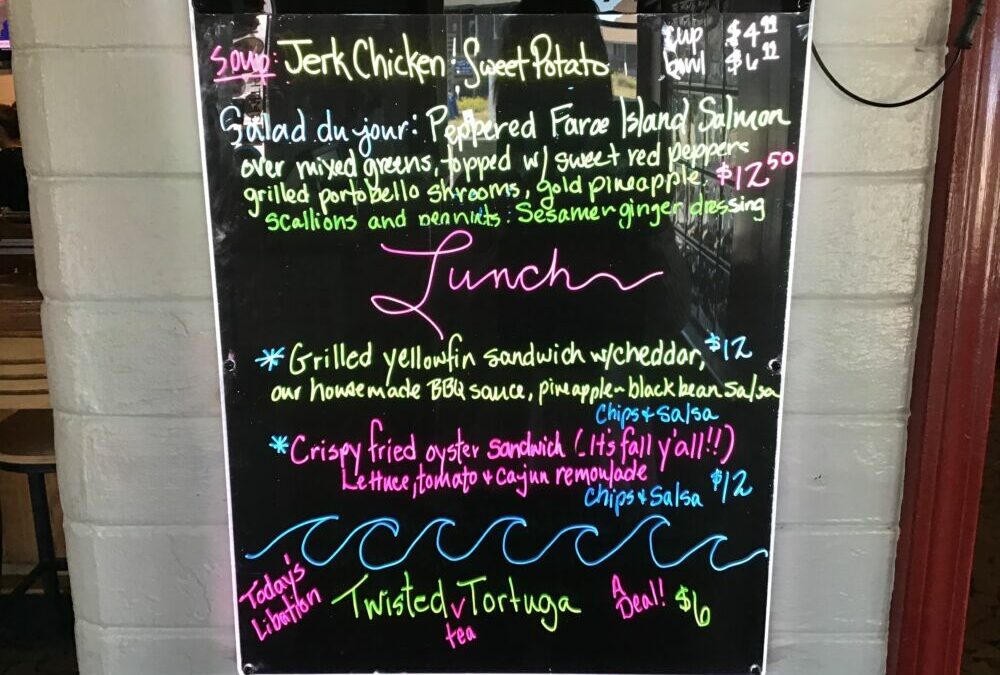 Soup: Jerk Chicken! Sweet Potato
cup $4.99
bowl $6.99
Salad du jour: Peppered Faroe Island Salmon
over mixed greens, topped w/ sweet red peppers
grilled portobello shrooms, gold pineapple. $12.50
scallions and peanuts. Sesame ginger dressing
Lunch
* Grilled yellowfin sandwich w/cheddar, $12
our housemade BBQ sauce, pineapple-black bean salsa
chips + salsa
* Crispy fried oyster sandwich (It's fall y'all!!)
Lettuce, tomato + cajun remoulade
chips + salsa $12
Today's Libation
Twisted tea Tortuga
A Deal! $6